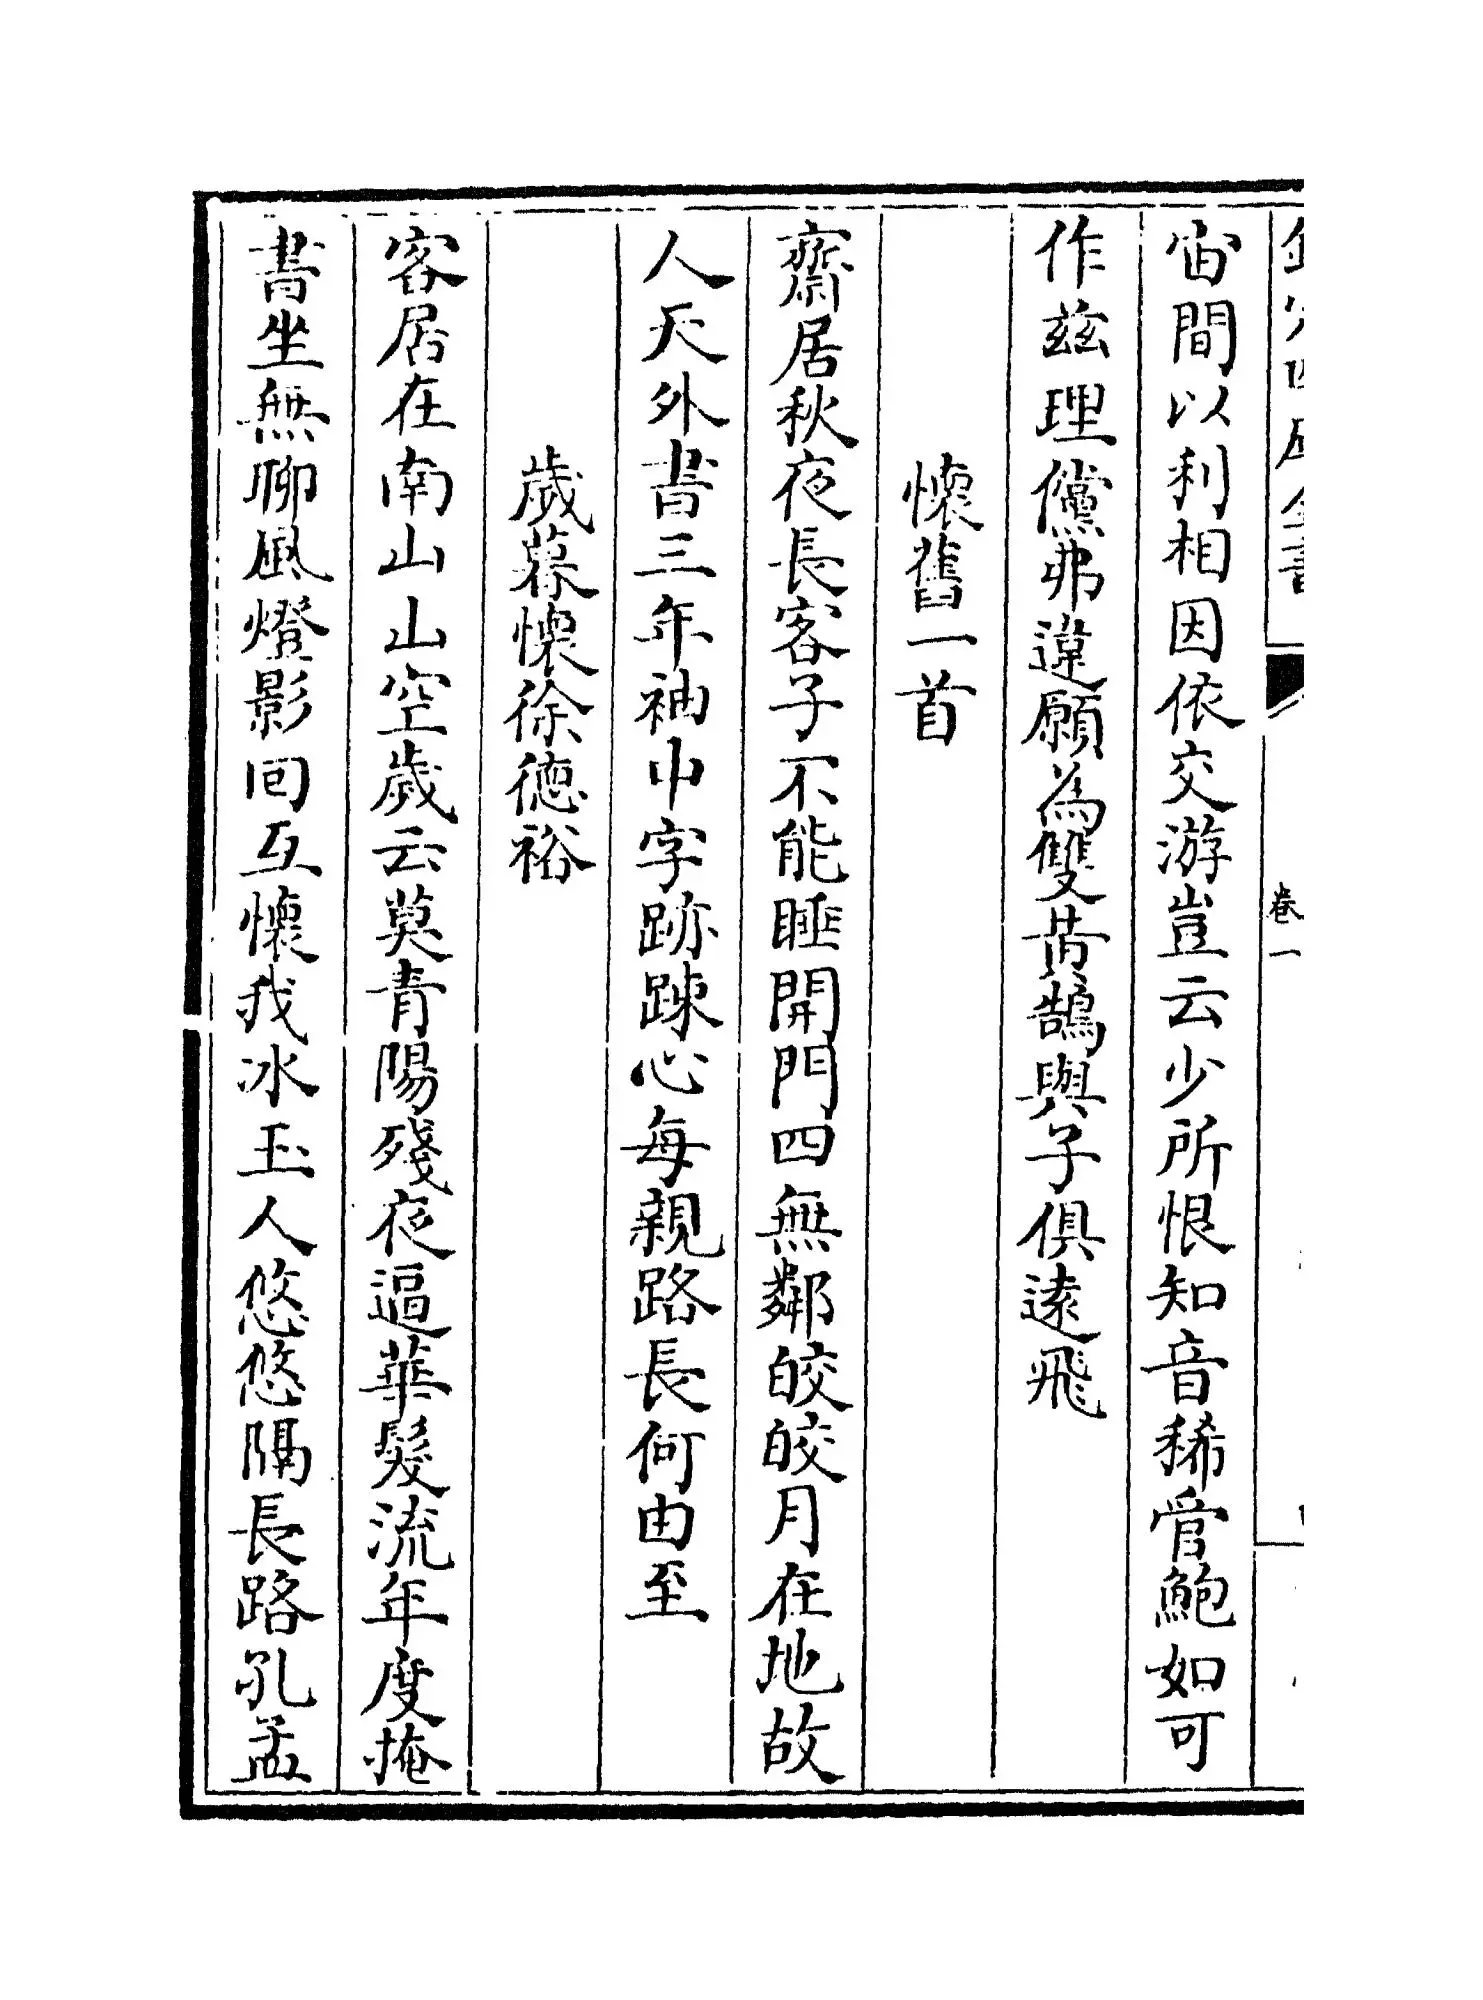 欽定四庫全書
卷一
宙間以利相因依交游豈云少所恨知音稀管鮑如可
作兹理儻弗違願為雙黄鵠與子俱逺飛
懷舊一首
齋居秋夜長客子不能睡開門四無鄰皎皎月在地故
人天外書三年袖中字跡踈心每親路長何由至
歲暮懷徐德裕
客居在南山山空歲云莫青陽殘夜逼華髮流年度掩
書坐無聊風燈影回互懷我冰玉人悠悠隔長路孔孟